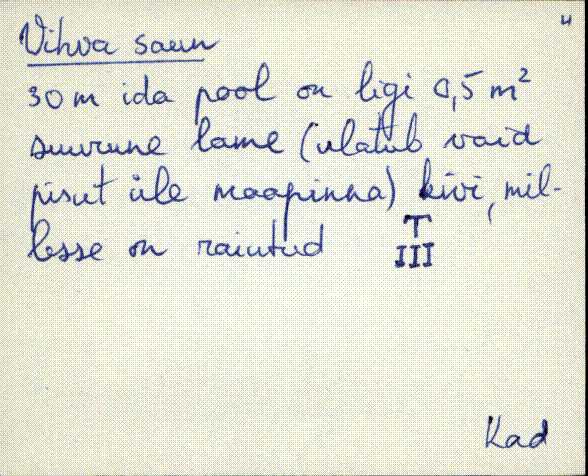 4
Vihva saun
30 m ida pool on ligi 0,5 m²
suurune lame (ulatub vaid
pisut üle maapinna) kivi, mil-
lesse on raiutud T
III
Kad